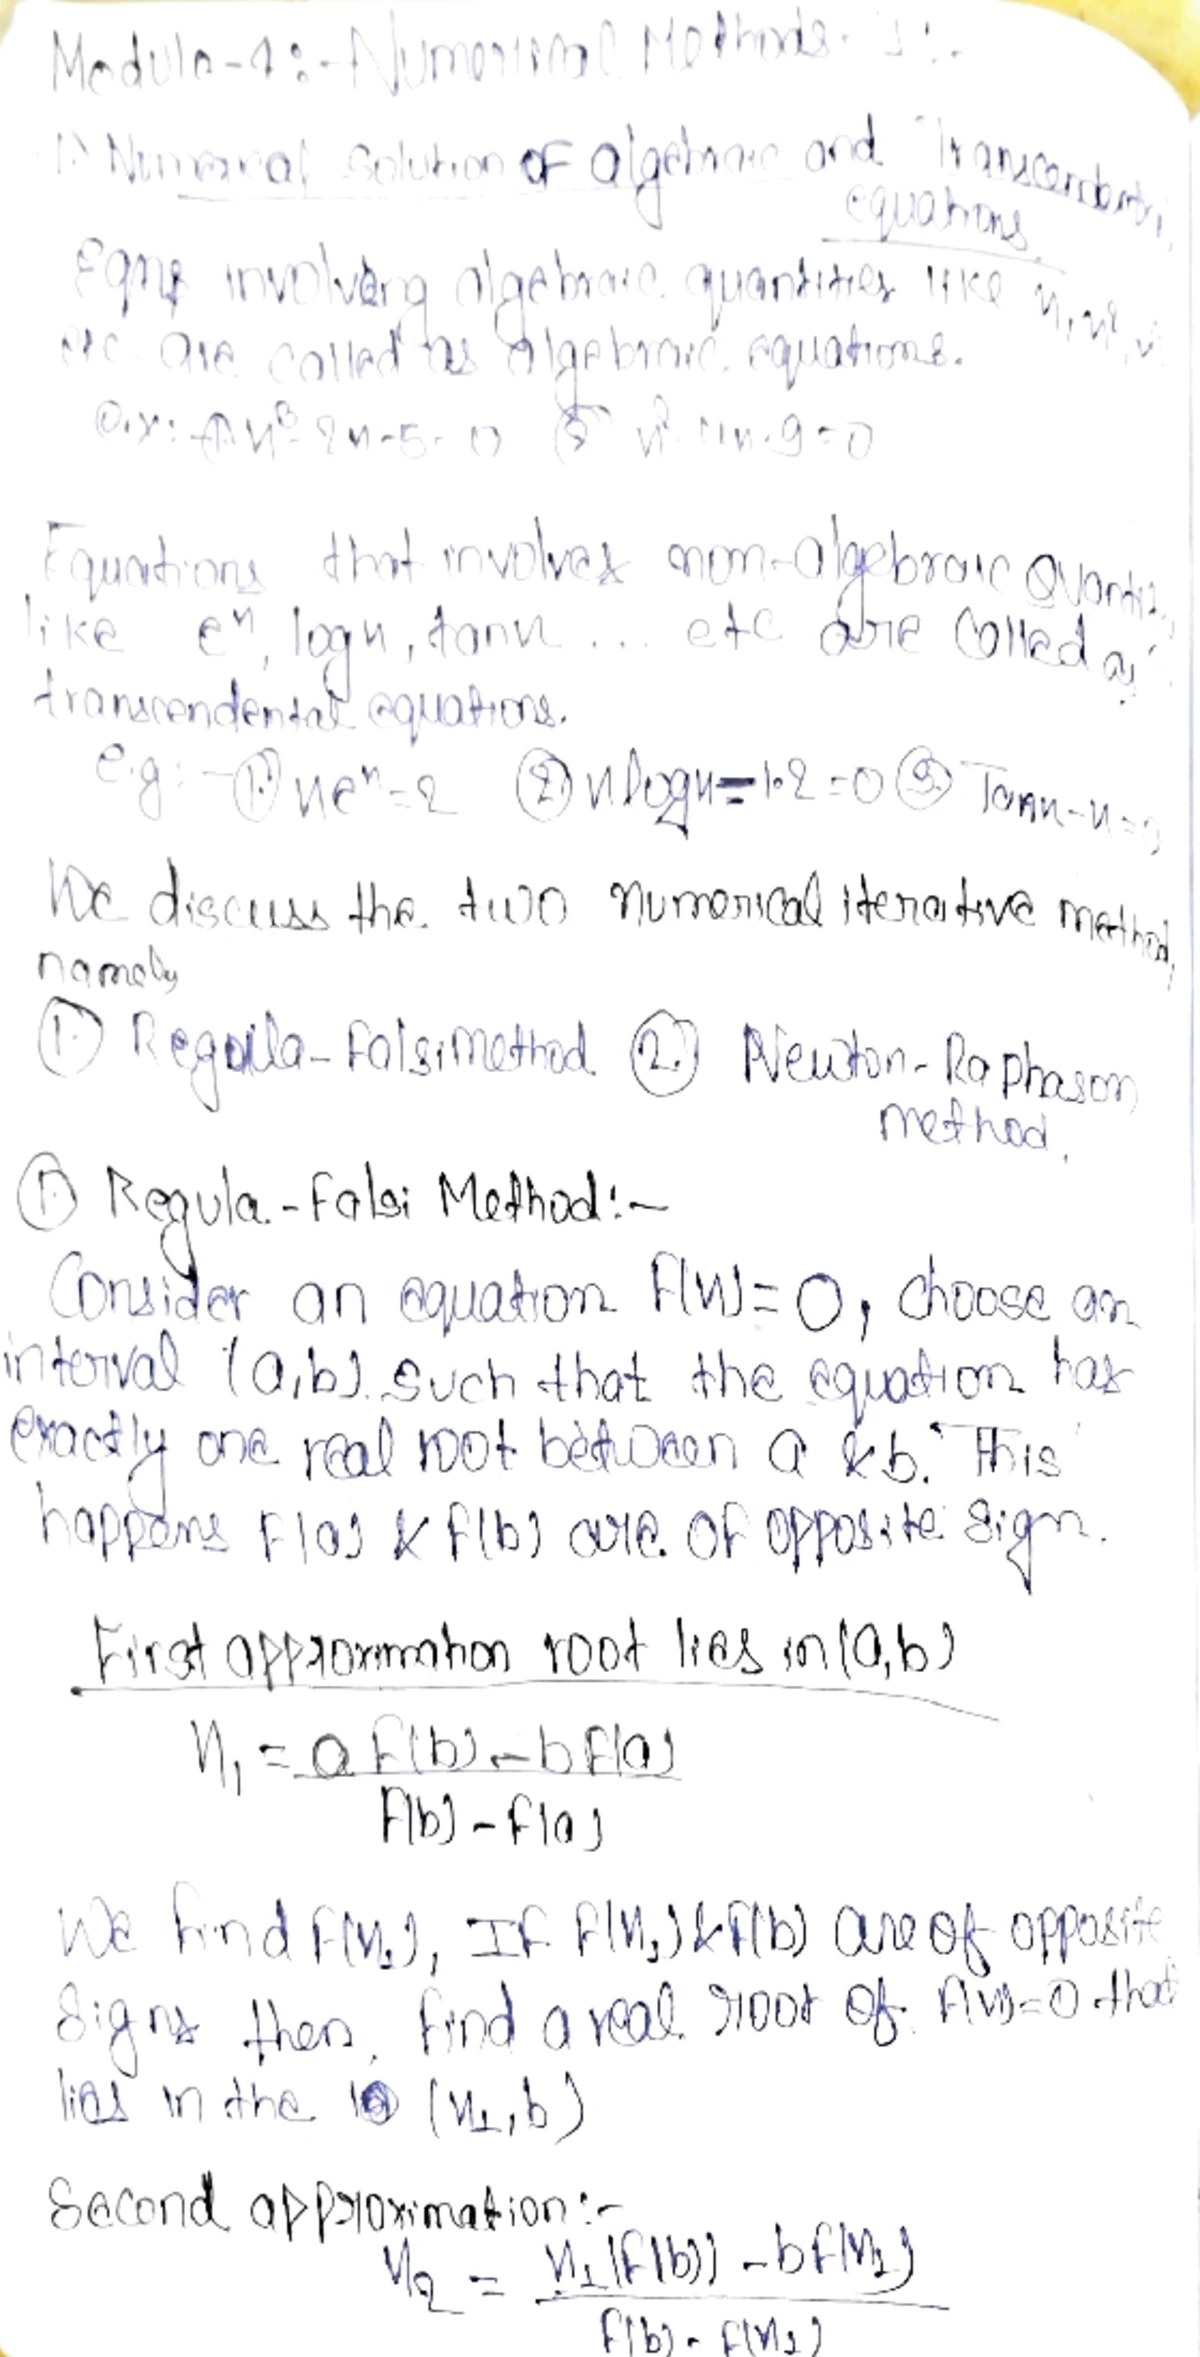 Module-4:- Numerical Methods - 1:-
1.) Numerical solution of algebraic and Transcendental
equations.
Eqns involving algebraic quantities like x, x²,
etc are called as algebraic equations.
e.x: - ① x³-2x-5=0 ② x²
Equations that involves non-algebraic Quantiti
like eˣ, logx, tanx ... etc are called as
transcendental equations.
e.g: - ① xeˣ=2 ② xlogx=1.2=0 ③ Tanx-x=0
We discuss the two numerical iterative method,
namely
① Reguila-Falsi method ② Newton-Raphason
method.
① Regula-Falsi Method:-
Consider an equation F(x)=0, choose an
interval (a,b) such that the equation has
exactly one real root between a & b. This
happens F(a) & F(b) are of opposite sign.
First approximation root lies in (a,b)
x₁ = a F(b) - b F(a)
F(b) - F(a)
We find F(x₁), If F(x₁) & F(b) are of opposite
signs then, find a real root of F(x)=0 that
lies in the (x₁, b)
Second approximation:-
x₂ = x₁(F(b)) - b F(x₁)
F(b) - F(x₁)